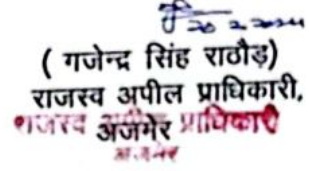 20.2.2024
( गजेन्द्र सिंह राठौड़)
राजस्व अपील प्राधिकारी,
अजमेर
राजस्व अपील प्राधिकारी
अजमेर